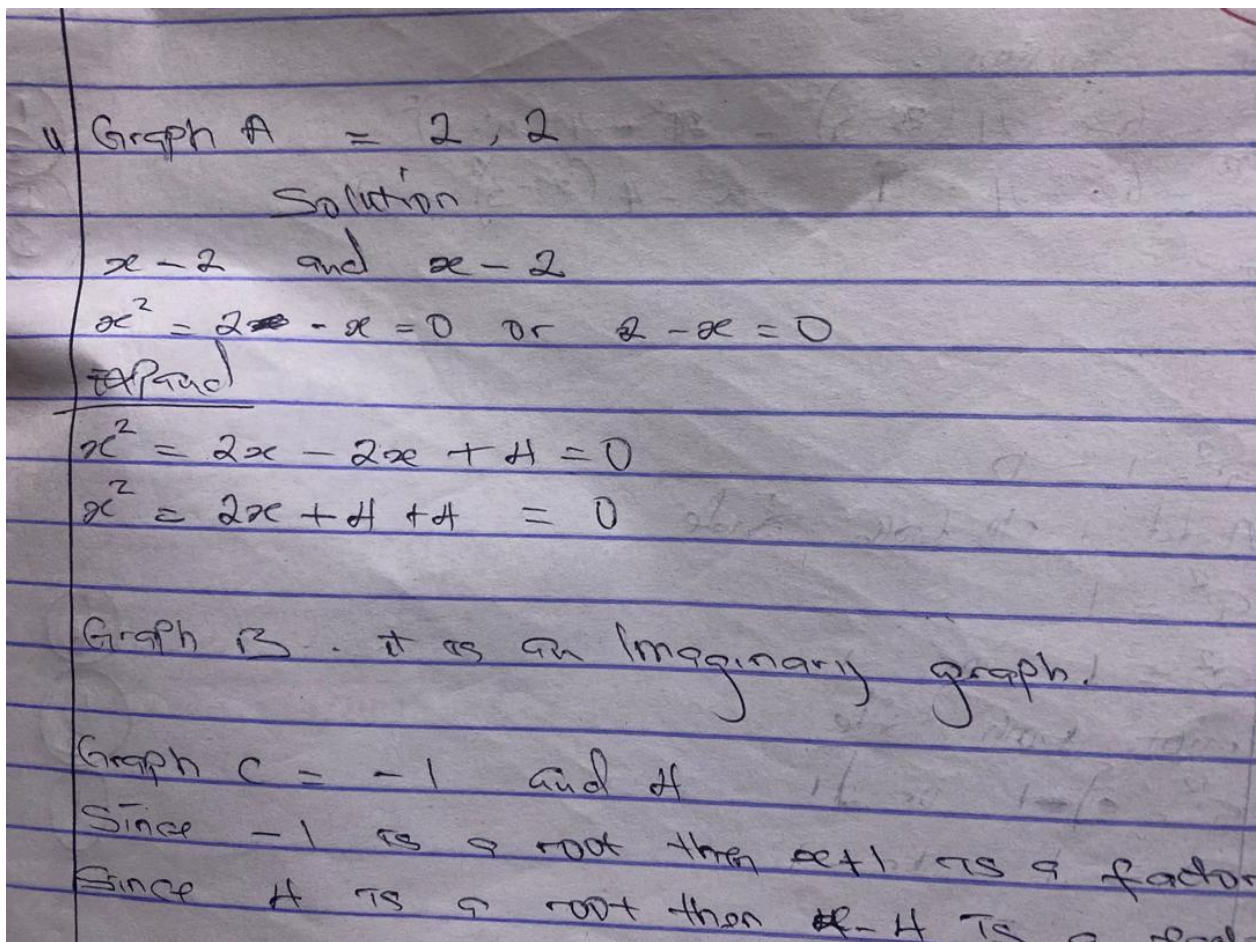 4 Graph A = 2, 2
Solution
x - 2 and x - 2
x² = 2 - x = 0 or 2 - x = 0
Expand
x² = 2x - 2x + 4 = 0
x² = 2x + 4 + 4 = 0
Graph B. it is an Imaginary graph.
Graph C = -1 and 4
Since -1 is a root then x+1 is a factor
Since 4 is a root then x - 4 is a